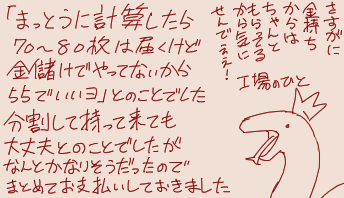 「まっとうに計算したら
70～80枚は届くけど
金儲けでやってないから
55でいいヨ」とのことでした
分割して持って来ても
大丈夫とのことでしたが
なんとかなりそうだったので
まとめてお支払いしておきました
さすがに
金持ち
からは
ちゃんと
もらってる
から気に
せんでぇぇ!
工場のひと